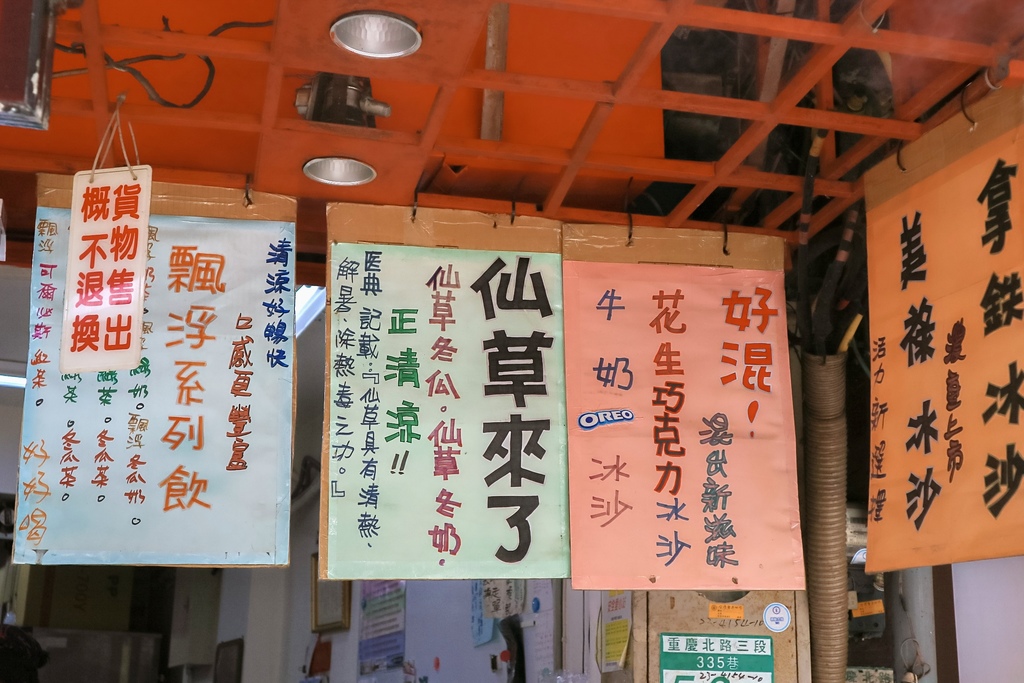 貨物售出
概不退換
清涼好暢快
口感更豐富
飄浮系列飲
飄浮冬瓜奶。
冬瓜茶。
冬瓜茶。
飄浮 可爾必斯 紅茶。
好好喝
仙草來了
仙草冬瓜。仙草冬奶。
正清涼!!
醫典記載:『仙草具有清熱、
解暑、除熱毒之功。』
好混!
混出新滋味
花生巧克力冰沙
牛奶
OREO
冰沙
拿鐵冰沙
濃重上市
美祿冰沙
活力新選擇
重慶北路三段
335巷